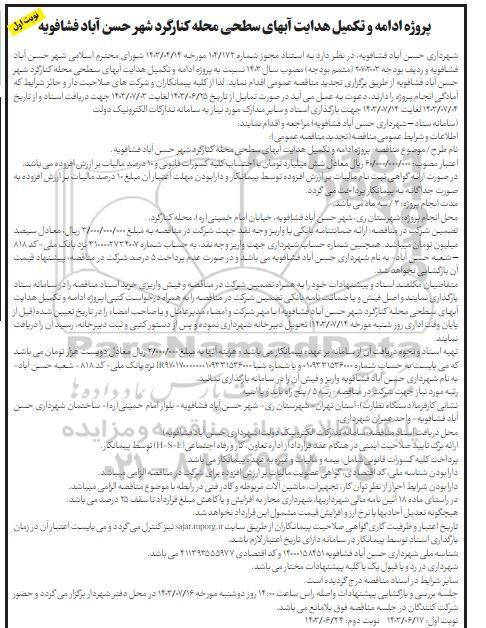 نوبت اول
پروژه ادامه و تکمیل هدایت آبهای سطحی محله کنارگرد شهر حسن آباد فشافویه
شهرداری حسن آباد فشافویه، در نظر دارد به استناد مجوز شماره ۱۰۴/۱۷۲ مورخه ۱۴۰۳/۰۴/۱۴ شورای محترم اسلامی شهر حسن آباد
فشافویه و ردیف بودجه ۲۰۷۲۰۰۳ (متمم بودجه) مصوب سال ۱۴۰۳ نسبت به پروژه ادامه و تکمیل هدایت آبهای سطحی محله کنارگرد شهر
حسن آباد فشافویه از طریق برگزاری تجدید مناقصه عمومی اقدام نماید. لذا از کلیه پیمانکاران و شرکت های صلاحیت دار و حائز شرایط که
آمادگی انجام پروژه را دارند، دعوت به عمل می آید در صورت تمایل از تاریخ ۱۴۰۳/۰۶/۲۵ لغایت ۱۴۰۳/۰۷/۰۳ جهت دریافت اسناد و از تاریخ
۱۴۰۳/۰۷/۰۴ لغایت ۱۴۰۳/۰۷/۱۴ جهت بارگذاری اسناد و سایر مدارک مورد نیاز به سامانه تدارکات الکترونیک دولت
(سامانه ستاد – شهرداری حسن آباد فشافویه) مراجعه و اقدام نمایند:
اطلاعات و شرایط عمومی مناقصه (تجدید مناقصه عمومی):
نام طرح / موضوع مناقصه: پروژه ادامه و تکمیل هدایت آبهای سطحی محله کنارگرد شهر حسن آباد فشافویه.
اعتبار مصوب: ۶۰/۰۰۰/۰۰۰/۰۰۰ ریال معادل شش میلیارد تومان با احتساب کلیه کسورات قانونی و ۱۰ درصد مالیات بر ارزش افزوده می باشد.
در صورت ارائه گواهی ثبت نام مالیات بر ارزش افزوده توسط پیمانکار و دارا بودن مهلت اعتبار آن مبلغ ۱۰ درصد مالیات بر ارزش افزوده به
صورت جداگانه به پیمانکار پرداخت می گردد.
مدت انجام پروژه: ۳ / سه ماه می باشد.
محل انجام پروژه: شهرستان ری، شهر حسن آباد فشافویه، خیابان امام خمینی (ره)، محله کنارگرد.
تضمین شرکت در مناقصه: ارائه ضمانتنامه بانکی یا واریز وجه نقد جهت شرکت در مناقصه به مبلغ ۳/۰۰۰/۰۰۰/۰۰۰ ریال، معادل سیصد
میلیون تومان میباشد. همچنین شماره حساب شهرداری جهت واریز وجه نقد، به حساب شماره ۳۱۰۰۰۰۲۷۳۴۰۰۷ نزد بانک ملی - کد ۸۱۸
– شعبه حسن آباد - به نام شهرداری حسن آباد فشافویه می باشد و در صورت عدم پرداخت ۵ درصد شرکت در مناقصه، پیشنهاد قیمت
آن بازگشایی نخواهد شد.
متقاضیان مکلفند اسناد و پیشنهادات خود را به همراه تضمین شرکت در مناقصه و فیش واریزی خرید اسناد مناقصه را در سامانه ستاد
بارگذاری نمایند و اصل فیش و یا ضمانت نامه بانکی تضمین شرکت در مناقصه را به همراه درخواست کتبی (پروژه ادامه و تکمیل هدایت
آبهای سطحی محله کنارگرد شهر حسن آباد فشافویه) با مهر شرکت و امضاء مدیرعامل و یا صاحب امضاء را در تاریخ تعیین شده (قبل از
پایان وقت اداری روز شنبه مورخه ۱۴۰۳/۰۷/۱۴) تحویل دبیرخانه شهرداری نموده و پس از دستور کتبی و ثبت دبیرخانه، رسید آن را دریافت
نمایند.
تهیه اسناد و نحوه دریافت آن از سامانه بر عهده پیمانکار می باشد و هزینه آنها به مبلغ ۲/۰۰۰/۰۰۰ ریال معادل دویست هزار تومان می باشد
که می بایست به حساب شماره
نزد بانک ملی - کد ۸۱۸ - شعبه حسن آباد-
به نام شهرداری حسن آباد فشافویه واریز و فیش آن را در سامانه بارگذاری نمایند.
رتبه مورد نیاز جهت شرکت در مناقصه: رتبه ۵ / پنج راه باند و یا ابنیه.
نشانی کارفرما (دستگاه نظارت): استان تهران - شهرستان ری - شهر حسن آباد فشافویه - بلوار امام خمینی (ره) - ساختمان شهرداری حسن
آباد فشافویه - واحد عمران شهرداری.
محل دریافت اسناد مناقصه: سامانه تدارکات الکترونیک دولت (شهرداری حسن آباد فشافویه).
ارائه برگ تایید صلاحیت ایمنی در هنگام عقد قرارداد از اداره تعاون، کار و رفاه اجتماعی (H-S-E) توسط پیمانکار.
پرداخت کلیه کسورات قانونی شامل: بیمه و مالیات و غیره به عهده پیمانکار می باشد.
دارا بودن شناسه ملی، کد اقتصادی، گواهی عضویت مالیات بر ارزش افزوده برای شرکت در مناقصه الزامی میباشد.
دارا بودن شرایط احراز از نظر توان کار، تجهیزات، ماشین آلات مربوطه و کادر فنی در رابطه با موضوع مناقصه الزامی میباشد.
در راستای ماده ۱۸ آئین نامه مالی شهرداریها، شهرداری مجاز به افزایش و یا کاهش مبلغ قرارداد تا سقف ۲۵ درصد می باشد.
هیچگونه تعدیل آحادبها یا نرخ ارز و افزایش قیمت مشمول این قرارداد نخواهد شد.
تاریخ اعتبار و ظرفیت کاری گواهی صلاحیت پیمانکاران از طریق سایت sajar.mporg.ir نیز کنترل می گردد و می بایست اعتبار آن در زمان
بارگذاری اسناد توسط پیمانکار در سامانه دارای تاریخ اعتبار لازم باشد.
شناسه ملی شهرداری حسن آباد فشافویه ۱۴۰۰۰۱۵۸۴۵۱ و کد اقتصادی ۴۱۱۳۹۳۵۵۵۹۷۷ می باشد.
شهرداری در رد و یا قبول یک یا کلیه پیشنهادات مختار می باشد.
سایر شرایط در اسناد مناقصه درج گردیده است.
جلسه بررسی و بازگشایی پیشنهادات واصله راس ساعت ۱۴:۰۰ روز دوشنبه مورخه ۱۴۰۳/۰۷/۱۶ در محل دفتر شهردار برگزار می گردد و حضور
شرکت کنندگان در جلسه مناقصه فوق بلامانع می باشد.
نوبت اول: ۱۴۰۳/۰۶/۱۷ نوبت دوم: ۱۴۰۳/۰۶/۲۴